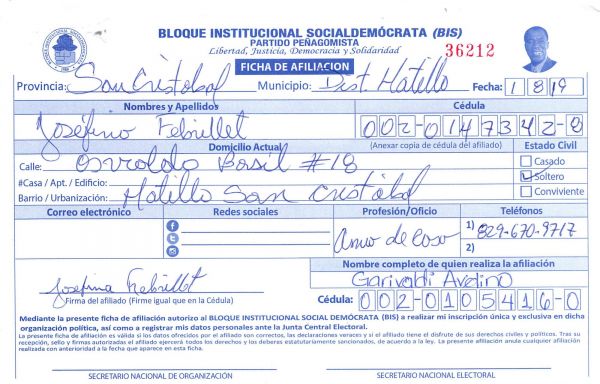 BLOQUE INSTITUCIONAL SOCIALDEMÓCRATA (BIS)
PARTIDO PEÑAGOMISTA
Libertad, Justicia, Democracia y Solidaridad
36212
FICHA DE AFILIACION
Provincia: San Cristobal Municipio: Dist. Hatillo Fecha: 1 8 19
Nombres y Apellidos Cédula
Joséfino Febrillet 002-0147342-8
Domicilio Actual (Anexar copia de cédula del afiliado) Estado Civil
Calle: Osvaldo Basil #18 Casado
#Casa / Apt. / Edificio: Soltero
Barrio / Urbanización: Hatillo San Cristóbal Conviviente
Correo electrónico Redes sociales Profesión/Oficio Teléfonos
Ama de casa 1) 829-670-9717
2)
Nombre completo de quien realiza la afiliación
Josefina Febrillet Garivaldi Avelino
Firma del afiliado (Firme igual que en la Cédula) Cédula: 002-0105416-0
Mediante la presente ficha de afiliación autorizo al BLOQUE INSTITUCIONAL SOCIAL DEMÓCRATA (BIS) a realizar mi inscripción única y exclusiva en dicha
organización política, así como a registrar mis datos personales ante la Junta Central Electoral.
La presente ficha de afiliación es válida si los datos ofrecidos por el afiliado son correctos, las declaraciones veraces y si el afiliado tiene el disfrute de sus derechos civiles y políticos. Tras su
recepción, sello y firmas autorizadas el afiliado ejercerá todos los derechos y los deberes estatutariamente sancionados, de acuerdo a la ley. La presente afiliación anula cualquier afiliación
realizada con anterioridad a la fecha que aparece en esta ficha.
SECRETARIO NACIONAL DE ORGANIZACIÓN SECRETARIO NACIONAL ELECTORAL